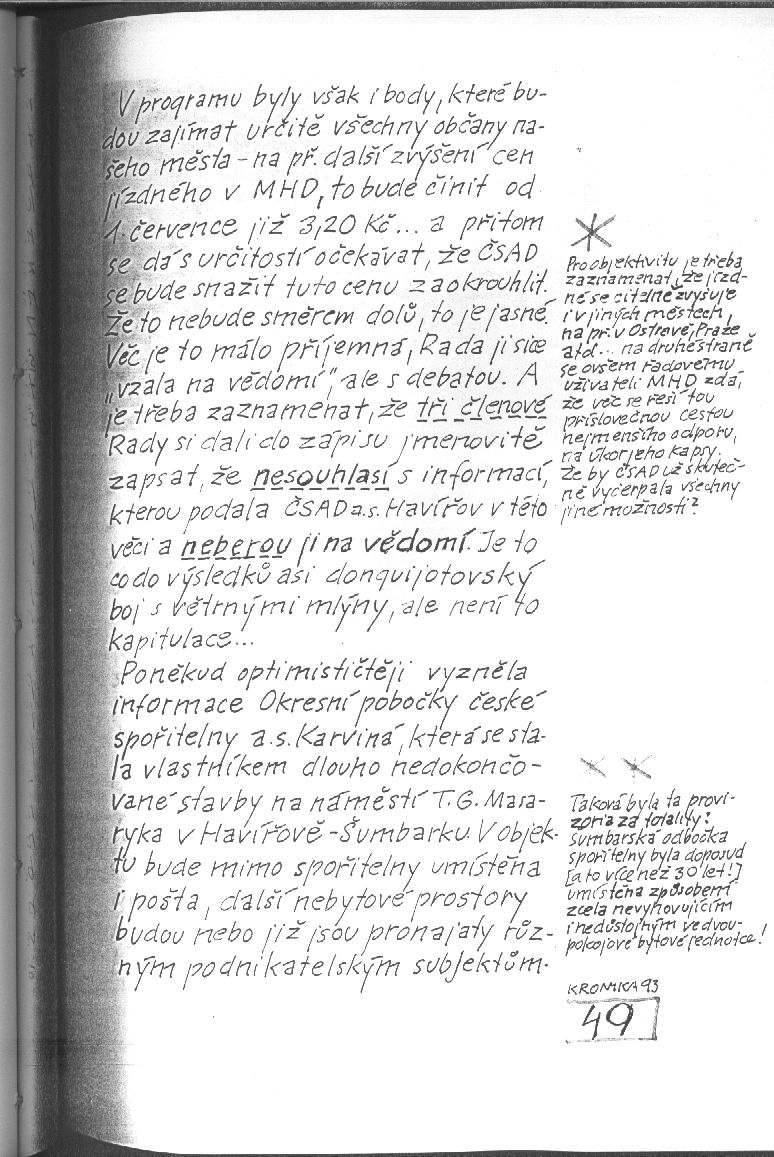 V programu byly však i body, které bu-
dou zajímat určitě všechny občany na-
šeho města - na př. další zvýšení cen
jízdného v MHD, to bude činit od
1. července již 3,20 Kč... a přitom
se dá s určitostí očekávat, že ČSAD
se bude snažit tuto cenu zaokrouhlit.
Že to nebude směrem dolů, to je jasné.
Věc je to málo příjemná, Rada ji sice
"vzala na vědomí", ale s debatou. A
je třeba zaznamenat, že tři členové
Rady si dali do zápisu jmenovitě
zapsat, že nesouhlasí s informací,
kterou podala ČSAD a.s. Havířov v této
věci a neberou ji na vědomí. Je to
co do výsledků asi donquijotovský
boj s větrnými mlýny, ale není to
kapitulace...
Poněkud optimističtěji vyzněla
informace Okresní pobočky české
spořitelny a.s. Karviná, která se sta-
la vlastníkem dlouho nedokončo-
vané stavby na náměstí T.G. Masa-
ryka v Havířově - Šumbarku. V objek-
tu bude mimo spořitelny umístěna
i pošta, další nebytové prostory
budou nebo již jsou pronajaty růz-
ným podnikatelským subjektům.
*
Pro objektivitu je třeba
zaznamenat, že jízd-
né se citelně zvyšuje
i v jiných městech,
na př. v Ostravě, Praze
atd... na druhé straně
se ovšem řadovému
uživateli MHD zdá,
že věc se řeší tou
příslovečnou cestou
nejmenšího odporu,
na úkor jeho kapsy.
Že by ČSAD už skuteč-
ně vyčerpala všechny
jiné možnosti?
* *
Taková byla ta provi-
zoria za totality:
šumbarská odbočka
spořitelny byla doposud
[a to více než 30 let!]
umístěna způsobem
zcela nevyhovujícím
i nedůstojným ve dvou-
pokojové bytové jednotce!
KRONIKA 93
49